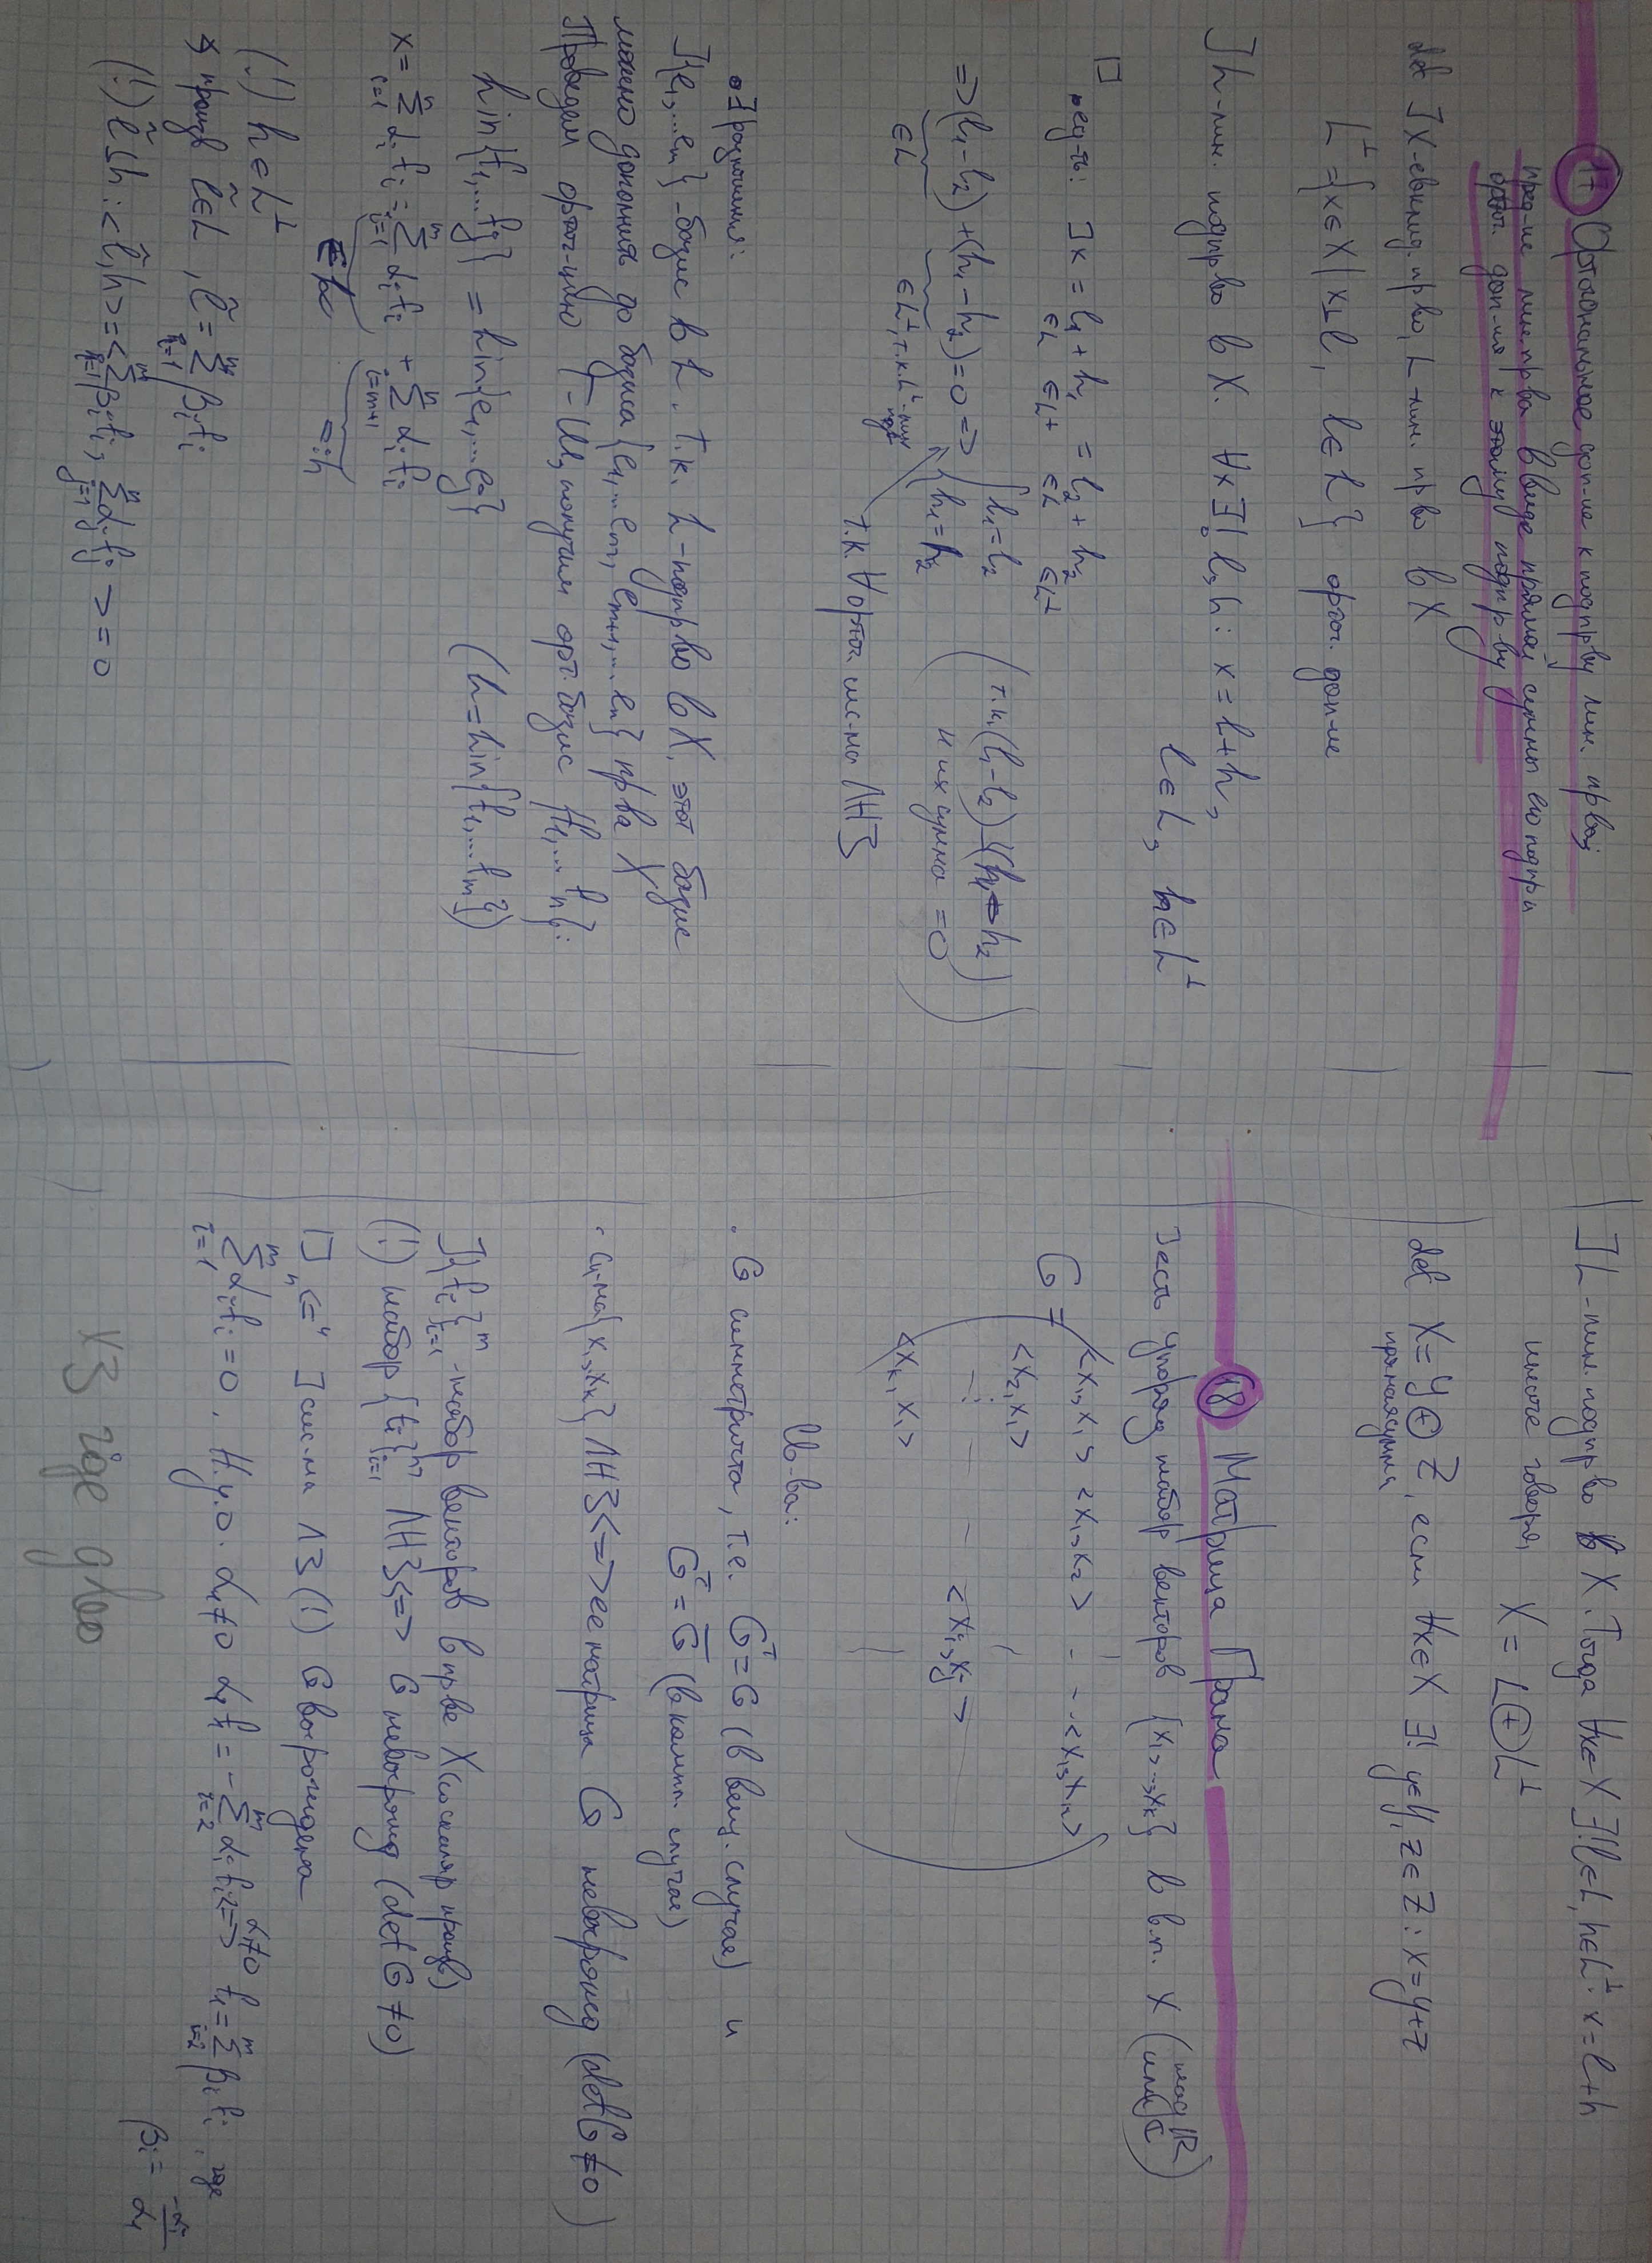 17 Ортогональное доп-ие к подпр-ву лин. пр-ва;
пред-ие лин. пр-ва в виде прямой суммы его подпр-в и
ортог. доп-ия к этому подпр-ву
def ] X-евклид. пр-во, L-лин. пр-во в X
L^⊥ = {x ∈ X | x ⊥ l, l ∈ L} ортог. доп-ие
] L-лин. подпр-во в X. ∀x ∃! l, h : x = l + h,
l ∈ L, h ∈ L^⊥
□ • ед-ть: ] x = l₁ + h₁ = l₂ + h₂
∈L ∈L^⊥ ∈L ∈L^⊥
=> (l₁ - l₂) + (h₁ - h₂) = 0 => { l₁ = l₂
h₁ = h₂
∈L ∈L^⊥, т.к. L^⊥-лин. подпр.
(т.к. (l₁ - l₂) ⊥ (h₁ - h₂)
и их сумма = 0)
т.к. ∀ ортог. сис-ма ЛНЗ
• ∃ разложения:
] {e₁, ... eₘ} - базис в L. т.к. L-подпр-во в X, этот базис
можно дополнить до базиса {e₁, ... eₘ, eₘ₊₁, ... eₙ} пр-ва X
Проведем ортог-цию Г-Ш, получим орт. базис {f₁, ... fₙ}:
Lin{f₁, ... fⱼ} = Lin{e₁, ... eⱼ} (L = Lin{f₁, ... fₘ})
x = Σⁿᵢ₌₁ αᵢfᵢ = Σᵐᵢ₌₁ αᵢfᵢ + Σⁿᵢ₌ₘ₊₁ αᵢfᵢ
∈L =:h
(!) h ∈ L^⊥
∢ произв l̃ ∈ L, l̃ = Σᵐᵢ₌₁ βᵢfᵢ
(!) l̃ ⊥ h : <l̃, h> = <Σᵐᵢ₌₁ βᵢfᵢ, Σⁿⱼ₌₁ αⱼfⱼ> = 0
] L-лин. подпр-во в X. Тогда ∀x ∈ X ∃! l ∈ L, h ∈ L^⊥: x = l + h
иначе говоря, X = L ⊕ L^⊥
def X = Y ⊕ Z, если ∀x ∈ X ∃! y ∈ Y, z ∈ Z : x = y + z
прямая сумма
18 Матрица Грама
] есть упоряд. набор векторов {x₁, ..., xₖ} в в.п. X (над ℝ или ℂ)
G = ( <x₁, x₁> <x₁, x₂> - - - <x₁, xₖ>
<x₂, x₁>
⋮ - - - <xᵢ, xⱼ>
<xₖ, x₁> )
Св-ва:
• G симметрична, т.е. G^T = G (в вещ. случае) и
G^T = G̅ (в компл. случае)
• с-ма {x₁, xₖ} ЛНЗ <=> ее матрица G невырожд (det G ≠ 0)
] {fᵢ}ᵐᵢ₌₁ - набор векторов в пр-ве X (со скаляр произв)
(!) набор {fᵢ}ᵐᵢ₌₁ ЛНЗ <=> G невырожд (det G ≠ 0)
□ "<=" ] сис-ма ЛЗ (!) G вырождена
Σᵐᵢ₌₁ αᵢfᵢ = 0. Н.у.о. α₁ ≠ 0 α₁f₁ = - Σᵐᵢ₌₂ αᵢfᵢ => α₁≠0 f₁ = Σᵐᵢ₌₂ βᵢfᵢ, где
βᵢ = -αᵢ/α₁